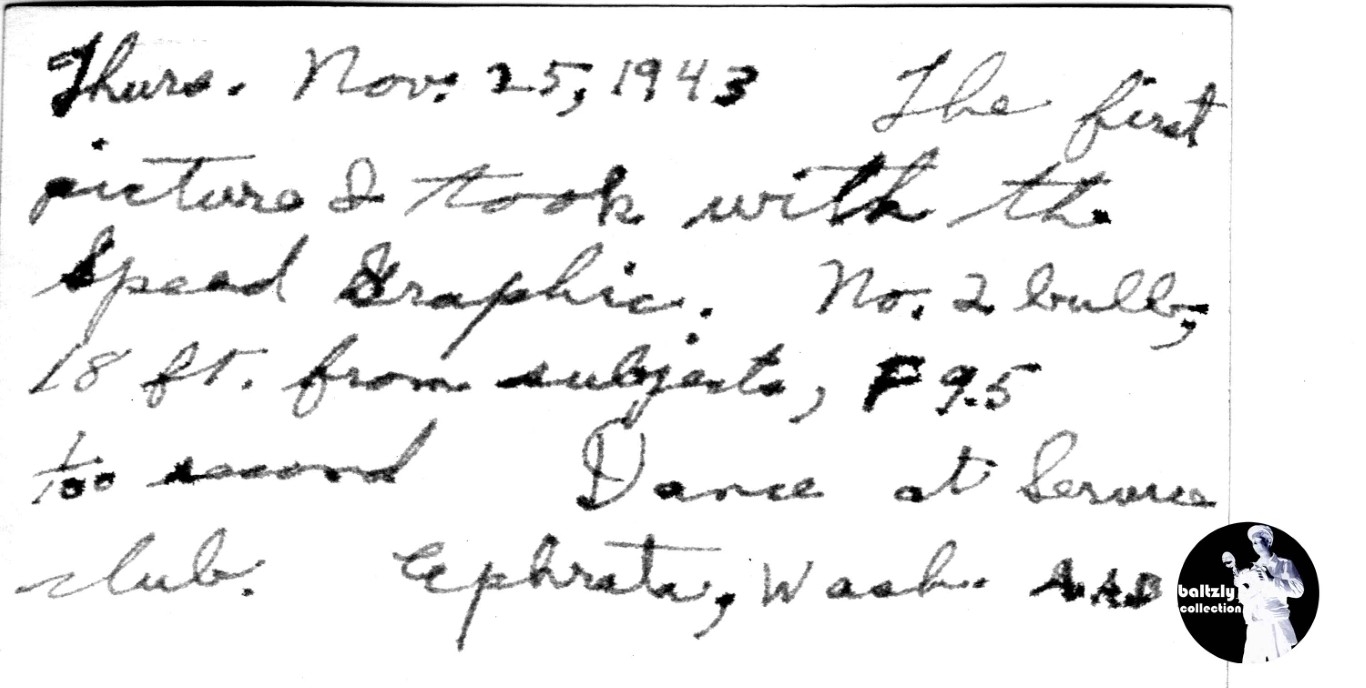 Thurs. Nov. 25, 1943 The first
picture I took with the
Speed Graphic. No. 2 bulb,
18 ft. from subjects, F 9.5
1/100 second Dance at Service
club. Ephrata, Wash. AAB
baltzly
collection